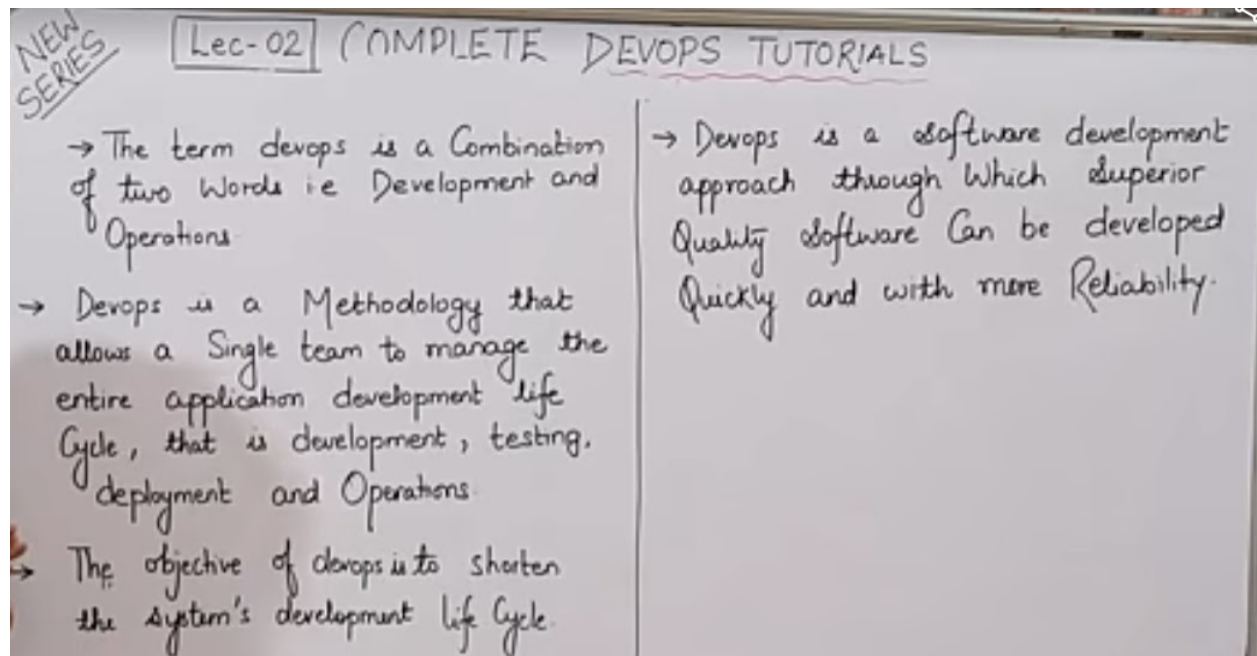 NEW
SERIES
Lec-02 COMPLETE DEVOPS TUTORIALS
→ The term devops is a Combination
of two Words i.e Development and
Operations.
→ Devops is a Methodology that
allows a Single team to manage the
entire application development life
Cycle, that is development, testing,
deployment and Operations.
→ The objective of devops is to shorten
the system's development life Cycle.
→ Devops is a software development
approach through Which Superior
Quality Software Can be developed
Quickly and with more Reliability.